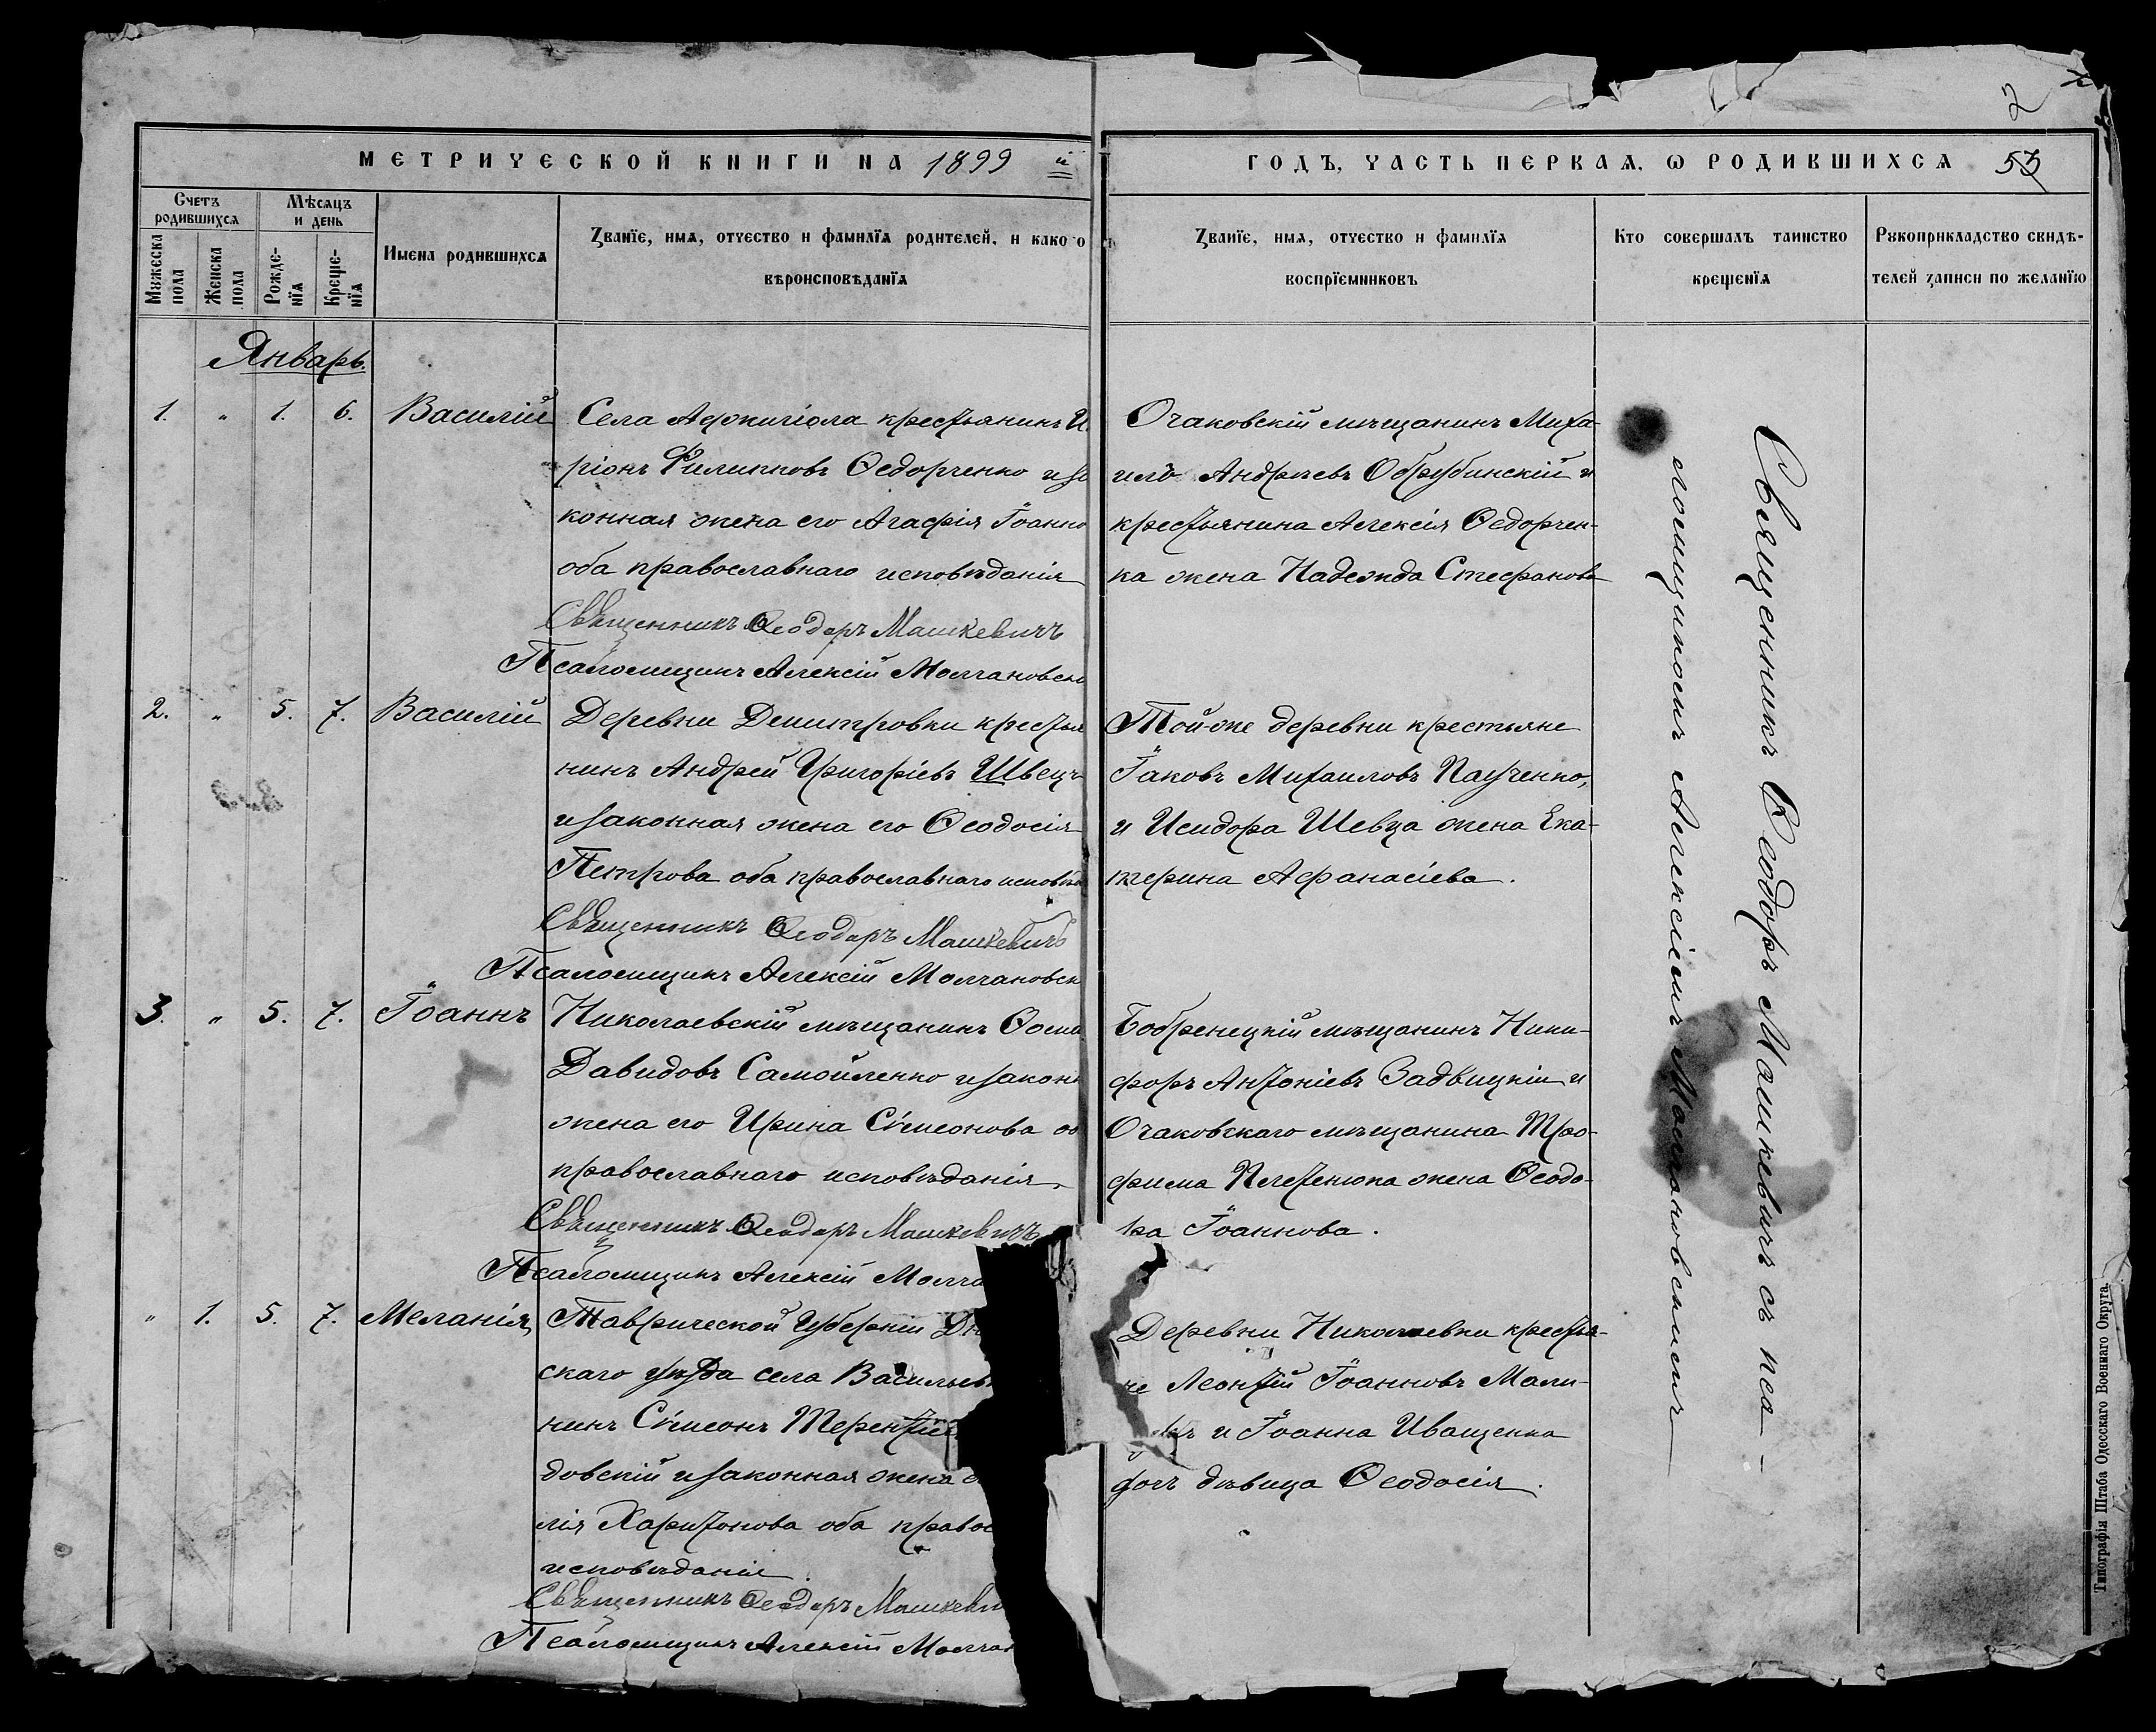 2
МЕТРИЧЕСКОЙ КНИГИ НА 1899 й
ГОДЪ, ЧАСТЬ ПЕРВАЯ, Ѡ РОДИВШИХСЯ 53
Счетъ родившихся
Мѣсяцъ и день
Мужеска пола
Женска пола
Рожде-нїя
Креще-нїя
Имена родившихся
Званїе, имя, отчество и фамилїя родителей, и какого
вѣроисповѣданїя
Званїе, имя, отчество и фамилїя
воспрїемниковъ
Кто совершалъ таинство
крещенїя
Рукоприкладство свидѣ-
телей записи по желанїю
Январь.
1. " 1. 6. Василій
Села Аджигіола крестьянинъ И
ріонъ Филипповъ Ѳедорченко и за
конная жена его Агафія Іоанно
оба православнаго исповѣданія
Священникъ Ѳеодоръ Машкевичъ
Псаломщикъ Алексій Молчановск
Очаковскій мѣщанинъ Миха-
илъ Андреевъ Обрубинскій и
крестьянина Алексія Ѳедорчен-
ка жена Надежда Стефанова
2. " 5. 7. Василій
Деревни Димитровки крестья
нинъ Андрей Григоріевъ Швецъ
и законная жена его Ѳеодосія
Петрова оба православнаго исповѣд
Священникъ Ѳеодоръ Машкевичъ
Псаломщикъ Алексій Молчановск
Той-же деревни крестьяне
Іаковъ Михаиловъ Паученко,
и Исидора Шевца жена Ека-
терина Афанасіева.
3. " 5. 7. Іоаннъ
Николаевскій мѣщанинъ Ѳома
Давидовъ Самойленко и законн
жена его Ирина Сѵмеонова об
православнаго исповѣданія
Священникъ Ѳеодоръ Машкевичъ
Псаломщикъ Алексій Молча
Бобренецкій мѣщанинъ Ники-
форъ Антоніевъ Задвицкій и
Очаковскаго мѣщанина Тро-
фима жена Ѳеодо-
ра Іоаннова.
" 1. 5. 7. Меланія
Таврической Губерніи Дн
скаго уѣзда села Васильев
нинъ Сѵмеонъ Терентіев
довскій и законная жена е
лія Харитонова оба правос
исповѣданія.
Священникъ Ѳеодоръ Машкеви
Псаломщикъ Алексій Молчан
Деревни Николаевки крестья-
не Леонтій Іоанновъ Мали-
и Іоанна Иващенка
дочь дѣвица Ѳеодосія.
Священникъ Ѳеодоръ Машкевичъ съ пса-
ломщикомъ Алексіемъ Молчановскимъ
Типографія Штаба Одесскаго Военнаго Округа.